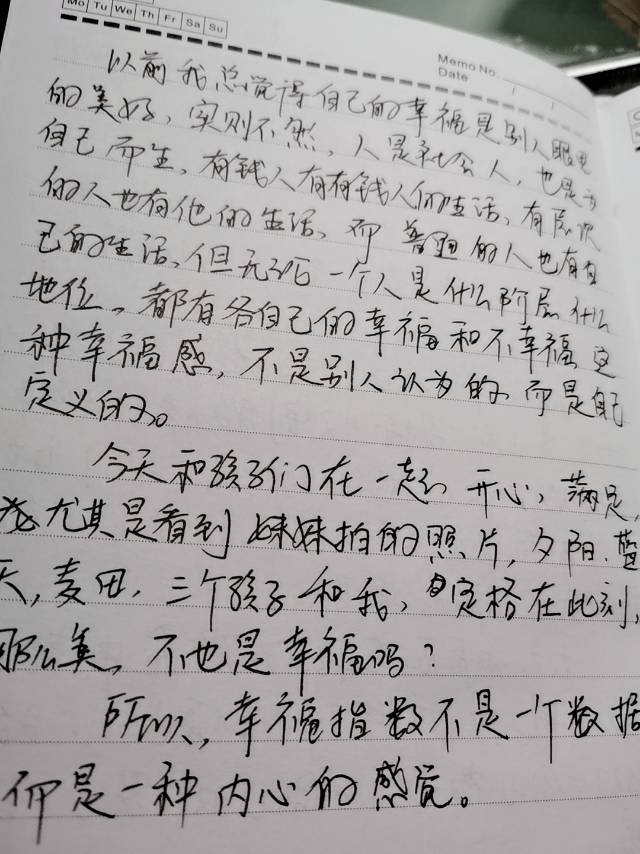 Mo Tu We Th Fr Sa Su
Memo No.
Date / /
以前我总觉得自己的幸福是别人眼里
的美好,实则不然,人是社会人,也是为
自己而生,有钱人有有钱人们的生活,有层次
的人也有他的生活,而普通的人也有自
己的生活,但无论一个人是什么阶层什么
地位,都有各自己的幸福和不幸福,这
种幸福感,不是别人认为的,而是自己
定义的。
今天和孩子们在一起,开心,满足,
尤其是看到妹妹拍的照片,夕阳,蓝
天,麦田,三个孩子和我,定格在此刻,
那么美,不也是幸福吗?
所以,幸福指数不是一个数据
而是一种内心的感觉。